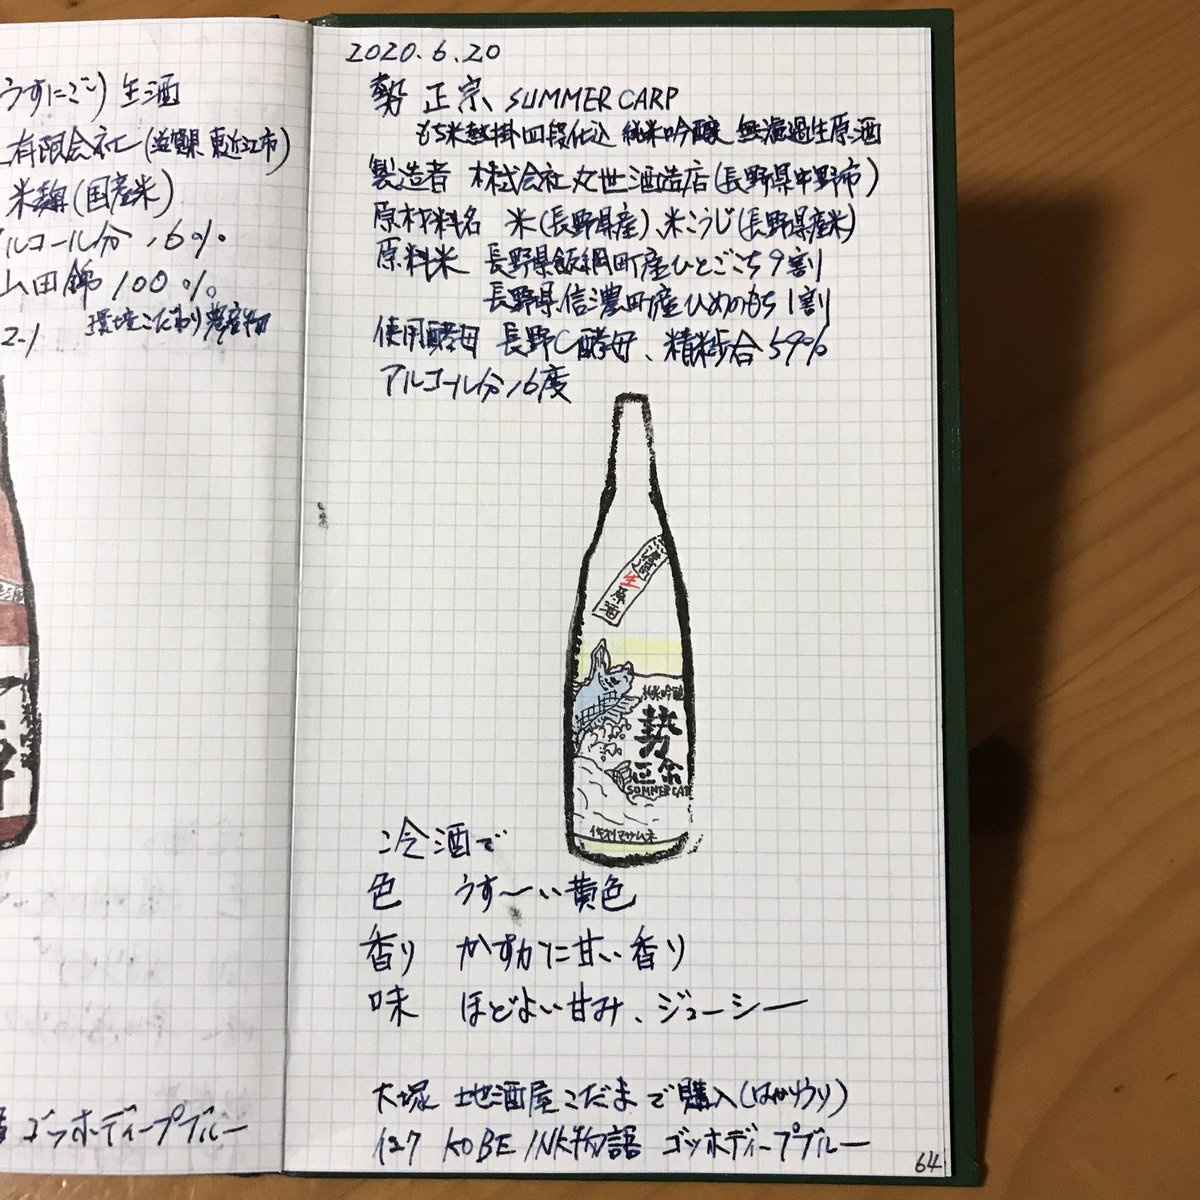 うすにごり 生酒
有限会社(滋賀県東近江市)
米麹(国産米)
アルコール分 16%
山田錦 100%
2-1 環境こだわり農産物
ゴッホディープブルー
2020.6.20
勢 正宗 SUMMER CARP
もち米熱掛四段仕込 純米吟醸 無濾過生原酒
製造者 株式会社丸世酒造店(長野県中野市)
原材料名 米(長野県産)、米こうじ(長野県産米)
原料米 長野県飯綱町産ひとごこち9割
長野県信濃町産ひめのもち1割
使用酵母 長野C酵母、精米歩合59%
アルコール分16度
無濾過生原酒
純米吟醸
勢
正宗
SUMMER CARP
勢正マサムネ
冷酒で
色 うす〜い黄色
香り かすかに甘い香り
味 ほどよい甘み、ジューシー
大塚 地酒屋こだまで購入(はかりうり)
127 KOBE INK物語 ゴッホディープブルー
64